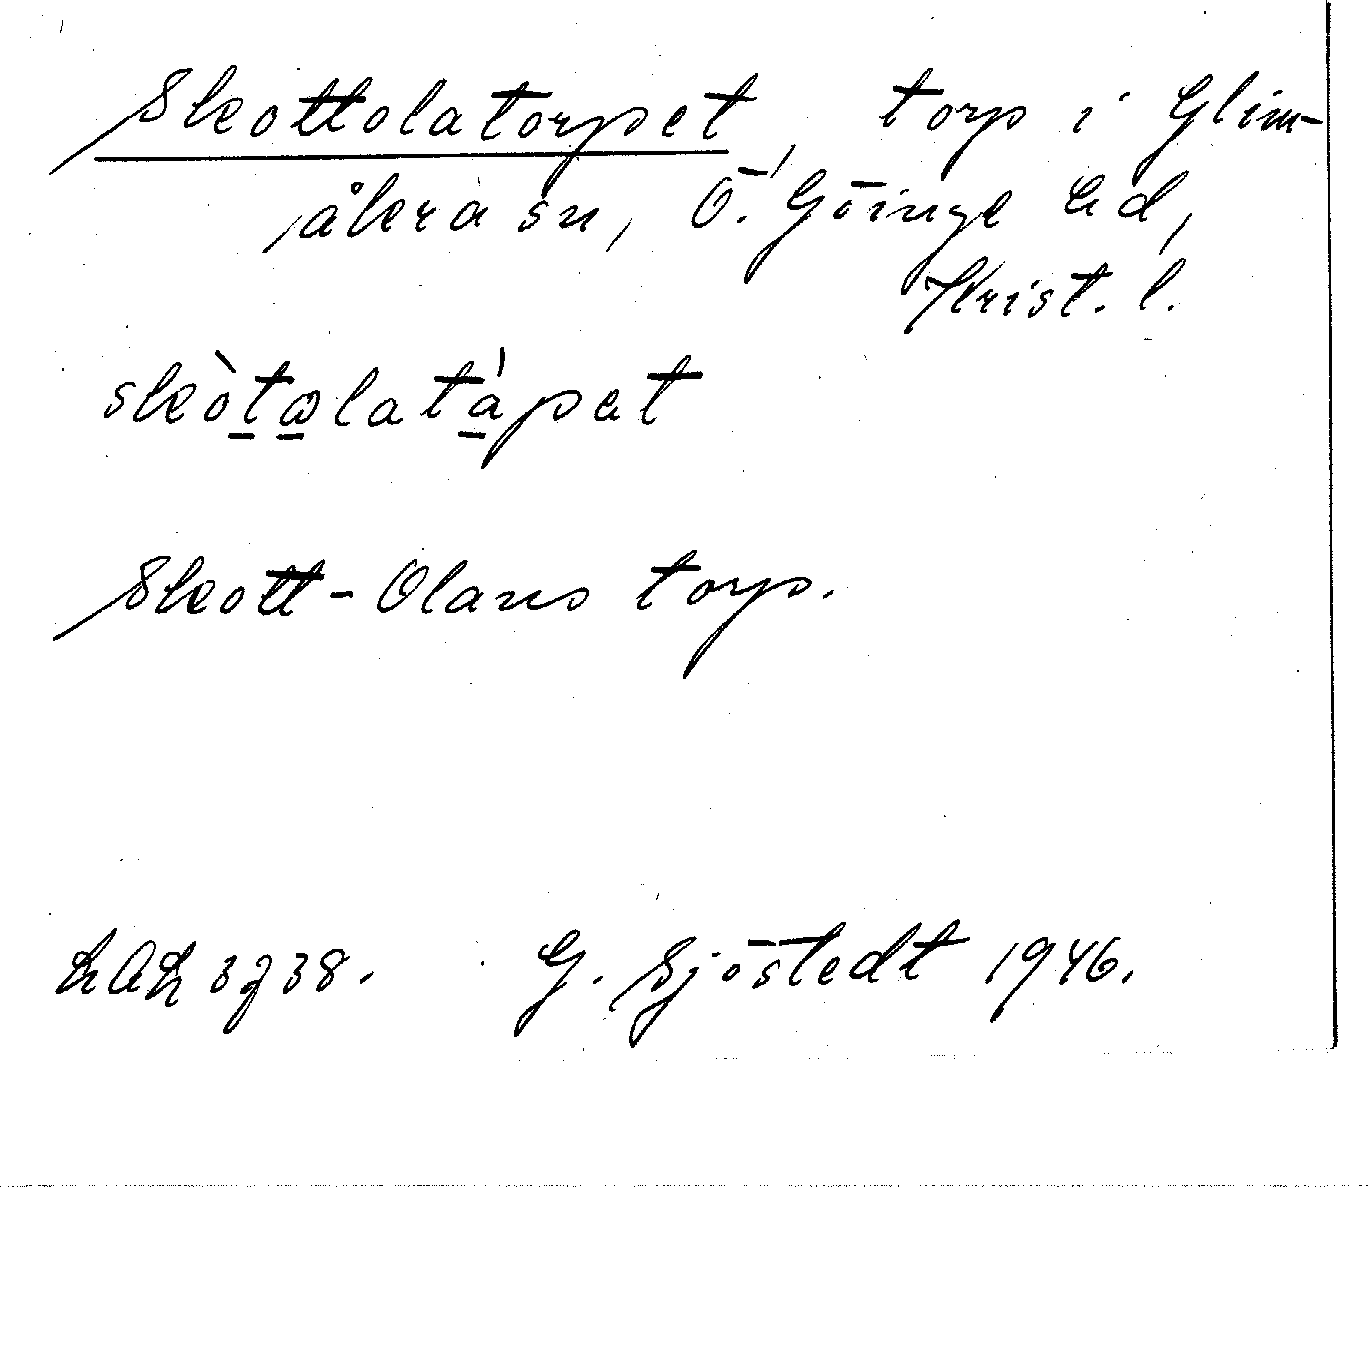 Skottolatorpet, torp i Glim-
åkra sn, Ö. Göinge hd,
Krist. l.
Skott-Olans torp.
LAL 3238. G. Sjöstedt 1946.